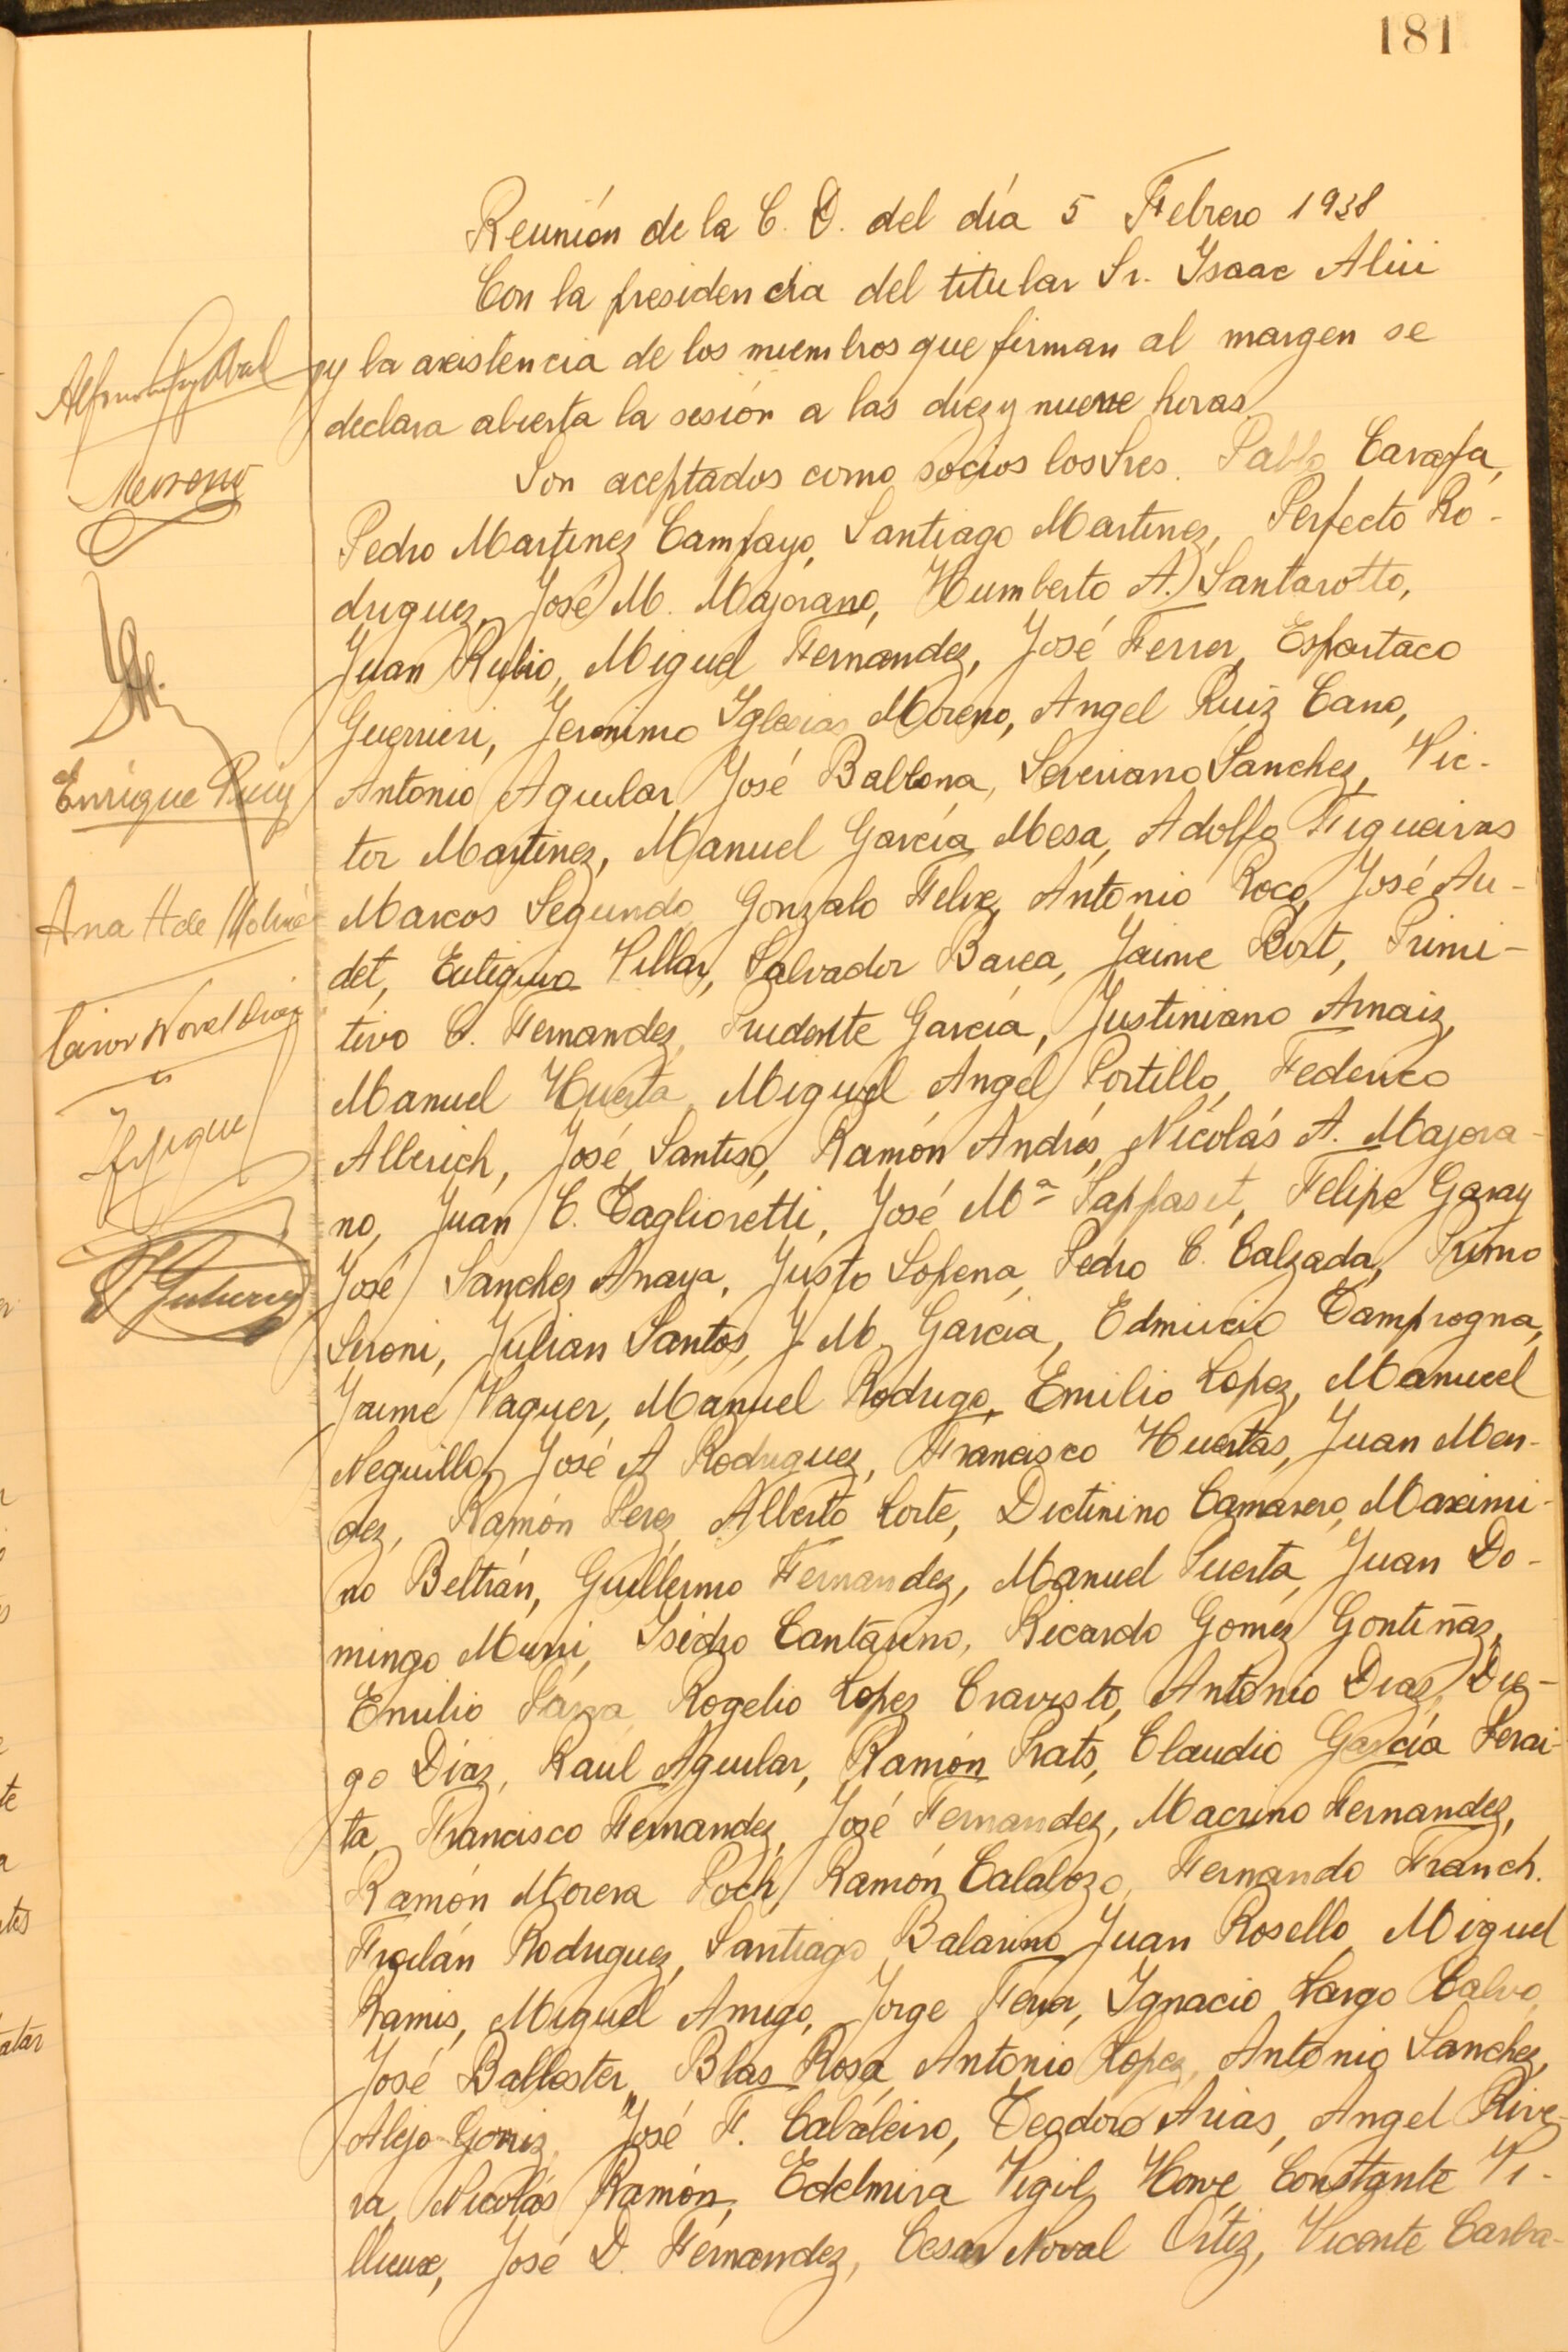 181
Reunión de la C. D. del día 5 Febrero 1938
Con la presidencia del titular Sr. Isaac
y la asistencia de los miembros que firman al margen se
declara abierta la sesión a las diez y nueve horas.
Son aceptados como socios los Sres. Pablo Carafa,
Pedro Martinez Campayo, Santiago Martinez, Perfecto Ro-
driguez, José M. Majorano, Humberto A. Santarotto,
Juan Rubio, Miguel Fernández, José Ferrer, Espartaco
Guerrieri, Jeronimo Iglesias Moreno, Angel Ruiz Cano,
Antonio Aguilar, José Ballona, Severiano Sanchez, Vic-
tor Martinez, Manuel García Mesa, Adolfo Figueiras
Marcos Segundo, Gonzalo Felix, Antonio Roca, José Au-
det, Villar, Salvador Barea, Jaime Bort, Primi-
tivo C. Fernandez, Prudente García, Justiniano Arnaiz,
Manuel Huerta, Miguel Angel Portillo, Federico
Alberich, José Santiso, Ramón Andrés, Nicolás A. Majora-
no, Juan C. Taglioretti, José Mª Felipe Garay
José Sanchez Anaya, Justo Sopena, Pedro C. Calzada, Primo
Seroni, Julian Santos, J. M. García, Tamprogna,
Jaime Vaquer, Manuel Rodrigo, Emilio Lopez, Manuel
Neguillo, José A Rodriguez, Francisco Huertas, Juan Men-
dez, Ramón Perez, Alberto Lorte, Dictinino Camarero, Maximi-
no Beltrán, Guillermo Fernandez, Manuel Puerta, Juan Do-
mingo Isidro Cantarino, Ricardo Gomez Gontiñas,
Emilio Rogelio Lopez Antonio Diaz, Die-
go Díaz, Raul Aguilar, Ramón Prats, Claudio García Perai-
ta, Francisco Fernandez, José Fernandez, Macrino Fernandez,
Ramón Morera Poch, Ramón Calabozo, Fernando Franch.
Froilán Rodriguez, Santiago Balarino, Juan Rosello, Miguel
Ramis, Miguel Amigo, Jorge Ferrer, Ignacio Largo Calvo,
José Ballester, Blas Rosa, Antonio Lopez, Antonio Sanchez,
Alejo Gomiz, José F. Cabaleiro, Teodoro Arias, Angel Rive-
ra, Nicolás Ramón, Edelmira Vigil, Constante Vi-
José D. Fernandez, Cesar Noval Ortiz, Vicente Carba-
Moreno
Enrique Puig
Ana H de
Noval Diaz
Gutierrez